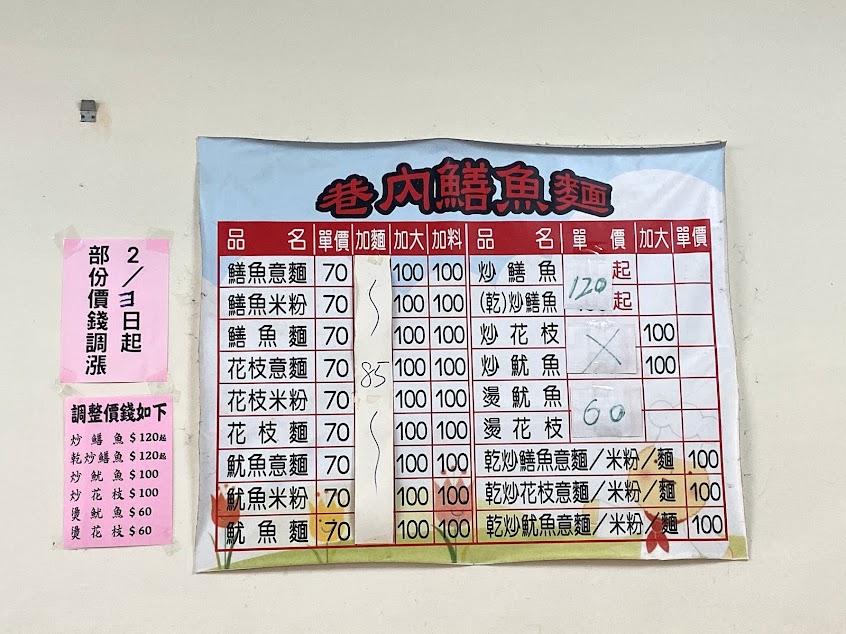 巷內鱔魚麵
品名 單價 加麵 加大 加料 品名 單價 加大 單價
鱔魚意麵 70 100 100 炒鱔魚 120起
鱔魚米粉 70 100 100 (乾)炒鱔魚 起
鱔魚麵 70 100 100 炒花枝 X 100
花枝意麵 70 85 100 100 炒魷魚 100
花枝米粉 70 100 100 燙魷魚 60
花枝麵 70 100 100 燙花枝
魷魚意麵 70 100 100 乾炒鱔魚意麵/米粉/麵 100
魷魚米粉 70 100 100 乾炒花枝意麵/米粉/麵 100
魷魚麵 70 100 100 乾炒魷魚意麵/米粉/麵 100
2/3日起
部份價錢調漲
調整價錢如下
炒鱔魚$120起
乾炒鱔魚$120起
炒魷魚$100
炒花枝$100
燙魷魚$60
燙花枝$60